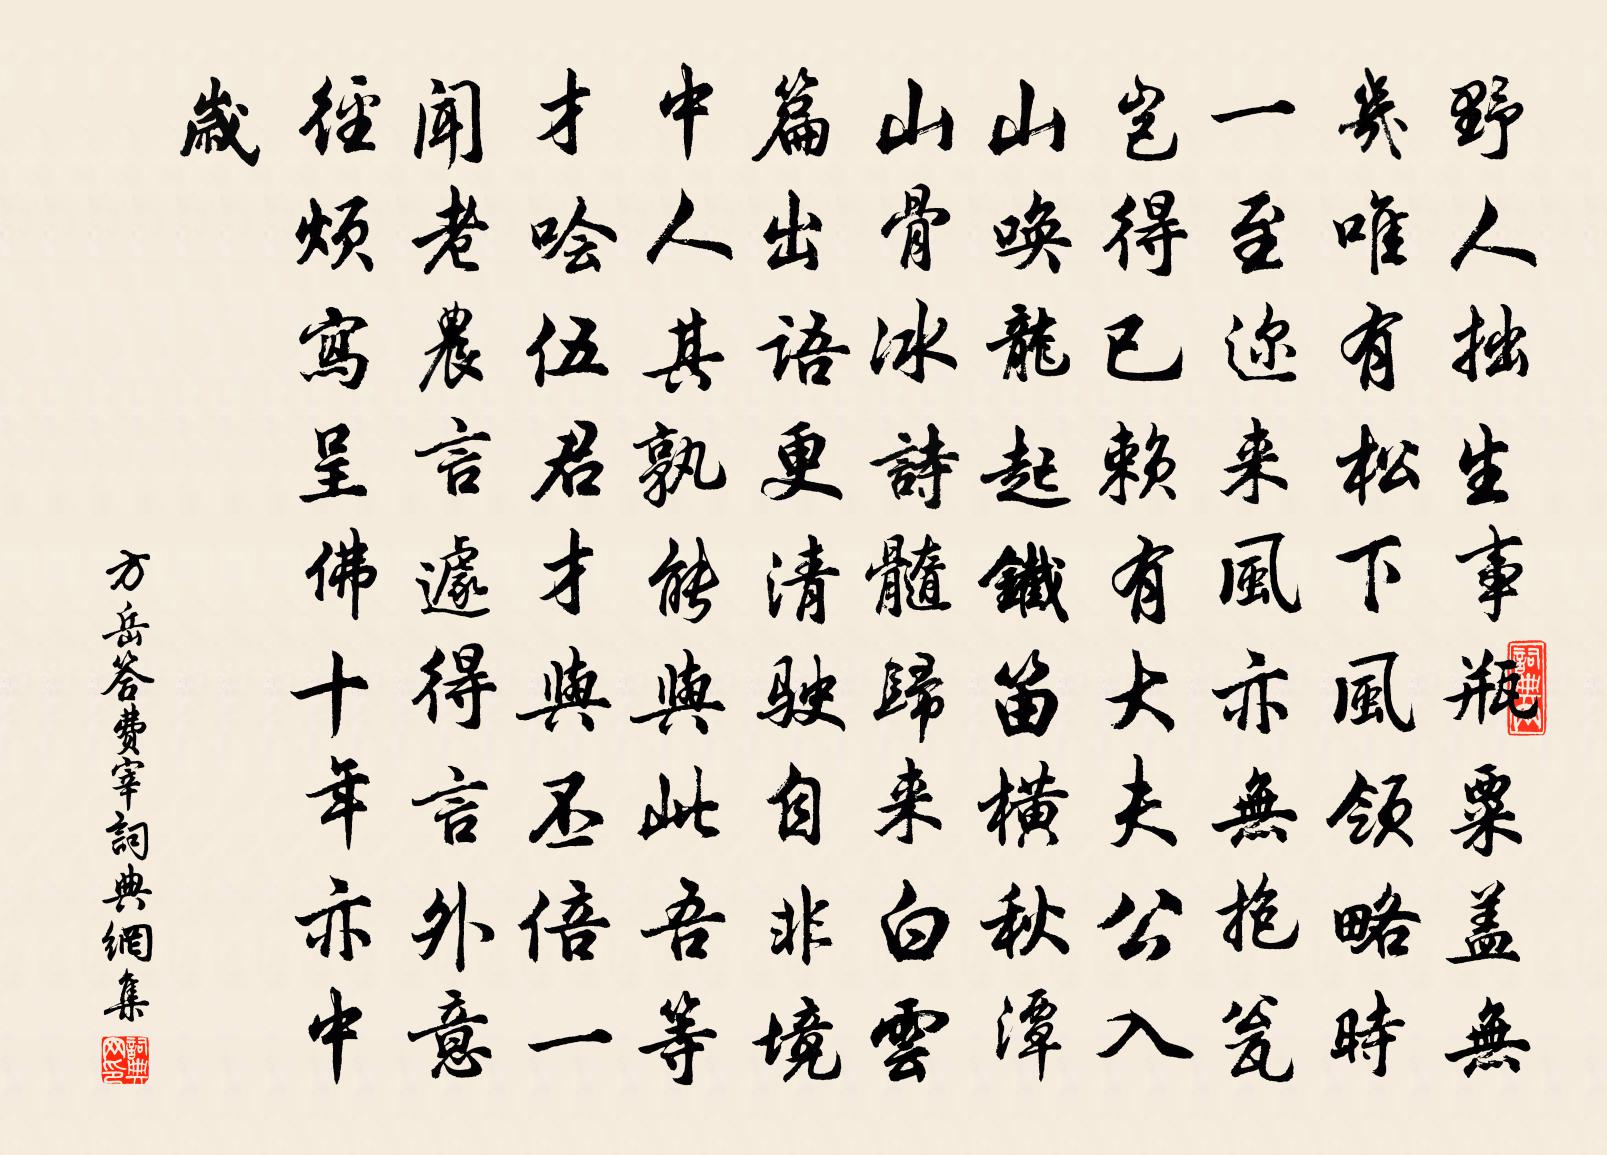 野人拙生事瓶粟盖無
幾唯有松下風領略時
一至迩来風亦無抱瓮
岂得已赖有大夫公入
山唤龍起鐵笛横秋潭
山骨冰詩髓歸来白雲
篇出語更清駛自非境
中人其孰能與此吾等
才哙伍君才與丕倍一
闻老農言遽得言外意
徑烦寫呈佛十年亦中
歲
方岳答费宰詞典網集